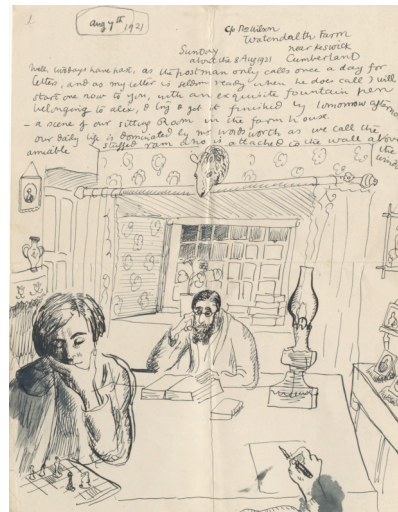 1
Aug 7th 1921
c/o Mr Wilson
Watendalth Farm
Sunday near Keswick
about the 8 Aug 1921 Cumberland
Well, two days have past, as the postman only calls once a day for
letters, and as my letter is seldom ready when he does call I will
start one now to you, with an exquisite fountain pen
belonging to Alex, & try & get it finished by tomorrow afternoon
– a scene of our sitting room in the farm house.
our daily life is dominated by Mr Wordsworth as we call the
amiable stuffed ram who is attached to the wall above
the
window